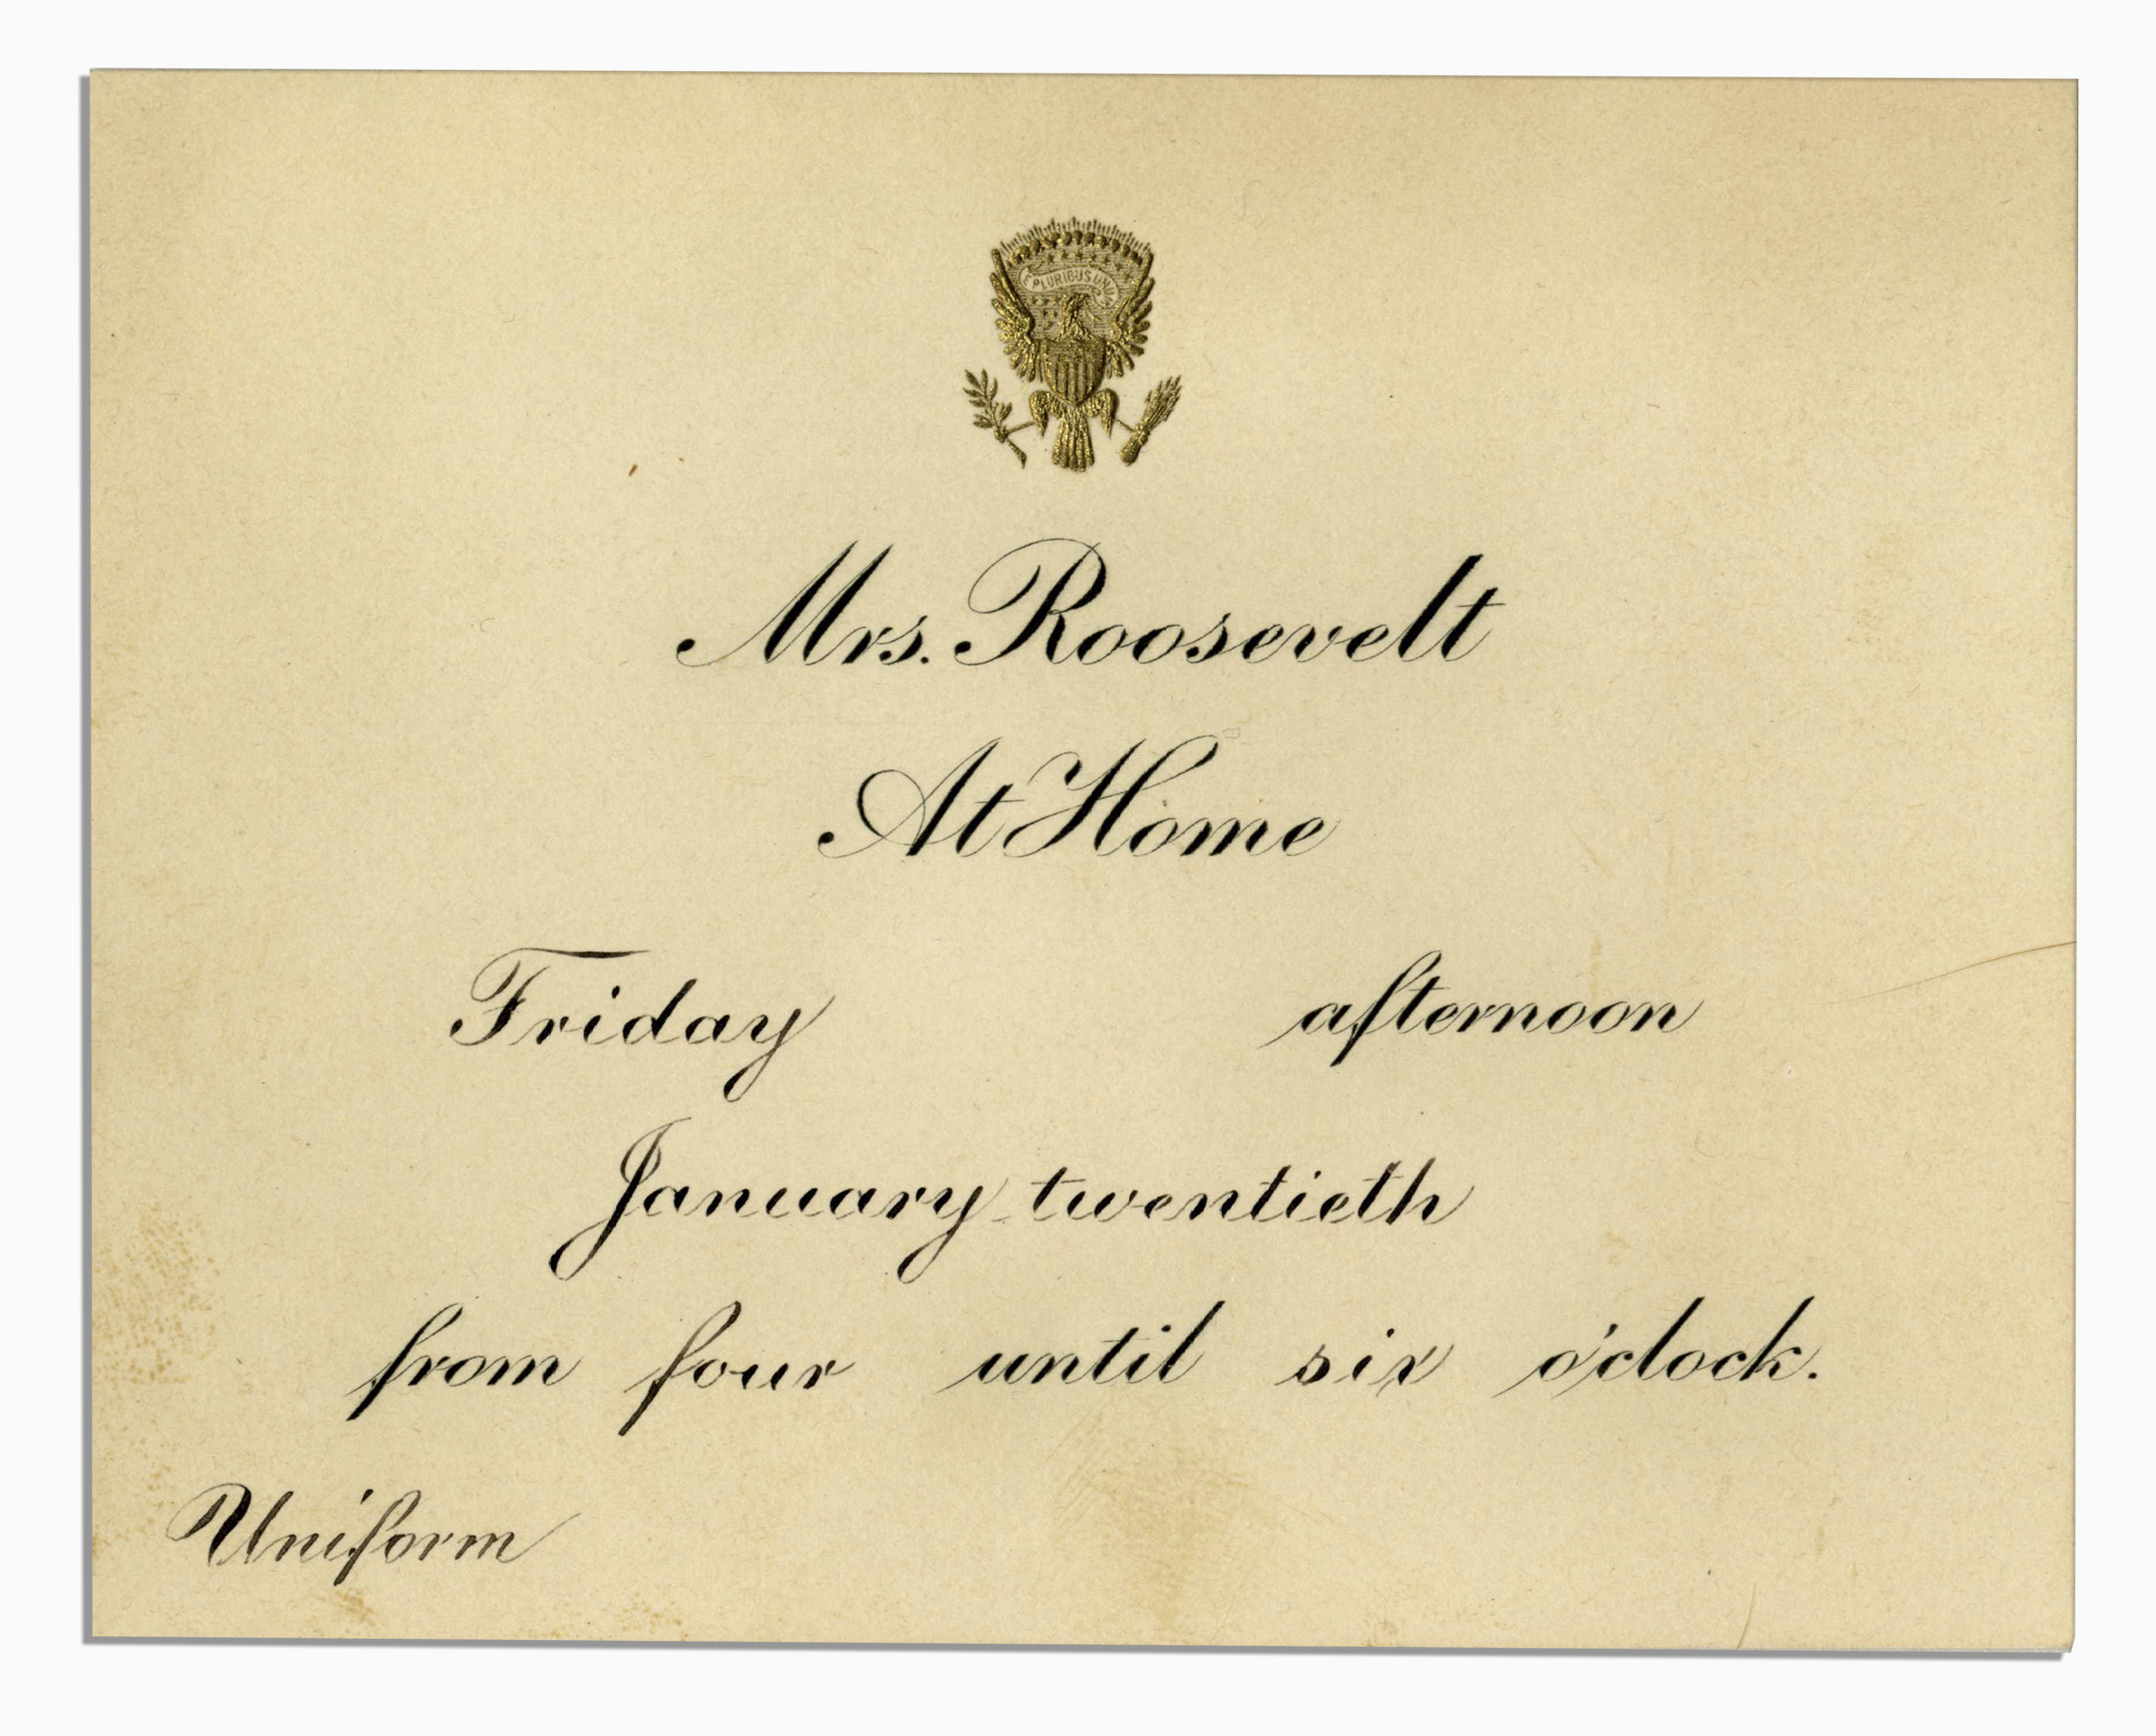 E PLURIBUS UNUM
Mrs. Roosevelt
At Home
Friday afternoon
January twentieth
from four until six o'clock.
Uniform